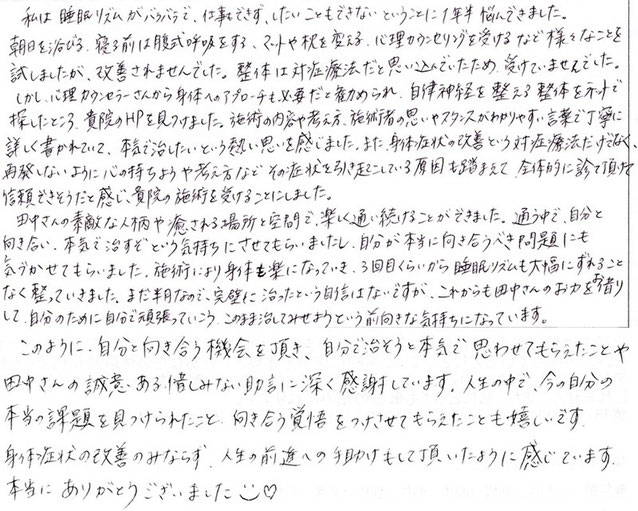 私は睡眠リズムがバラバラで、仕事もできず、したいこともできないということに1年半悩んできました。
朝日を浴びる、寝る前は腹式呼吸をする、マットや枕を変える、心理カウンセリングを受けるなど様々なことを
試しましたが、改善されませんでした。整体は対症療法だと思い込んでいたため、受けていませんでした。
しかし、心理カウンセラーさんから身体へのアプローチも必要だと勧められ、自律神経を整える整体をネットで
探したところ、貴院のHPを見つけました。施術の内容や考え方、施術者の思いやスタンスがわかりやすい言葉で丁寧に
詳しく書かれていて、本気で治したいという熱い思いを感じました。また、身体症状の改善という対症療法だけでなく、
再発しないように心の持ちようや考え方などその症状を引き起こしている原因も踏まえて、全体的に診て頂けて
信頼できそうだと感じ、貴院の施術を受けることにしました。
田中さんの素敵な人柄や癒される場所と空間で、楽しく通い続けることができました。通う中で、自分と
向き合い、本気で治すぞという気持ちにさせてもらいましたし、自分が本当に向き合うべき問題にも
気づかせてもらいました。施術により身体も楽になっていき、3回目くらいから睡眠リズムも大幅にずれること
なく整っていきました。まだ半月なので、完璧に治ったという自信はないですが、これからも田中さんのお力をお借り
して、自分のために自分で頑張っていこう、このまま治してみせようという前向きな気持ちになっています。
このように、自分と向き合う機会を頂き、自分で治そうと本気で思わせてもらえたことや
田中さんの誠意ある惜しみない助言に深く感謝しています。人生の中で、今の自分の
本当の課題を見つけられたこと、向き合う覚悟をつけさせてもらえたことも嬉しいです。
身体症状の改善のみならず、人生の前進への手助けもして頂いたように感じています。
本当にありがとうございました